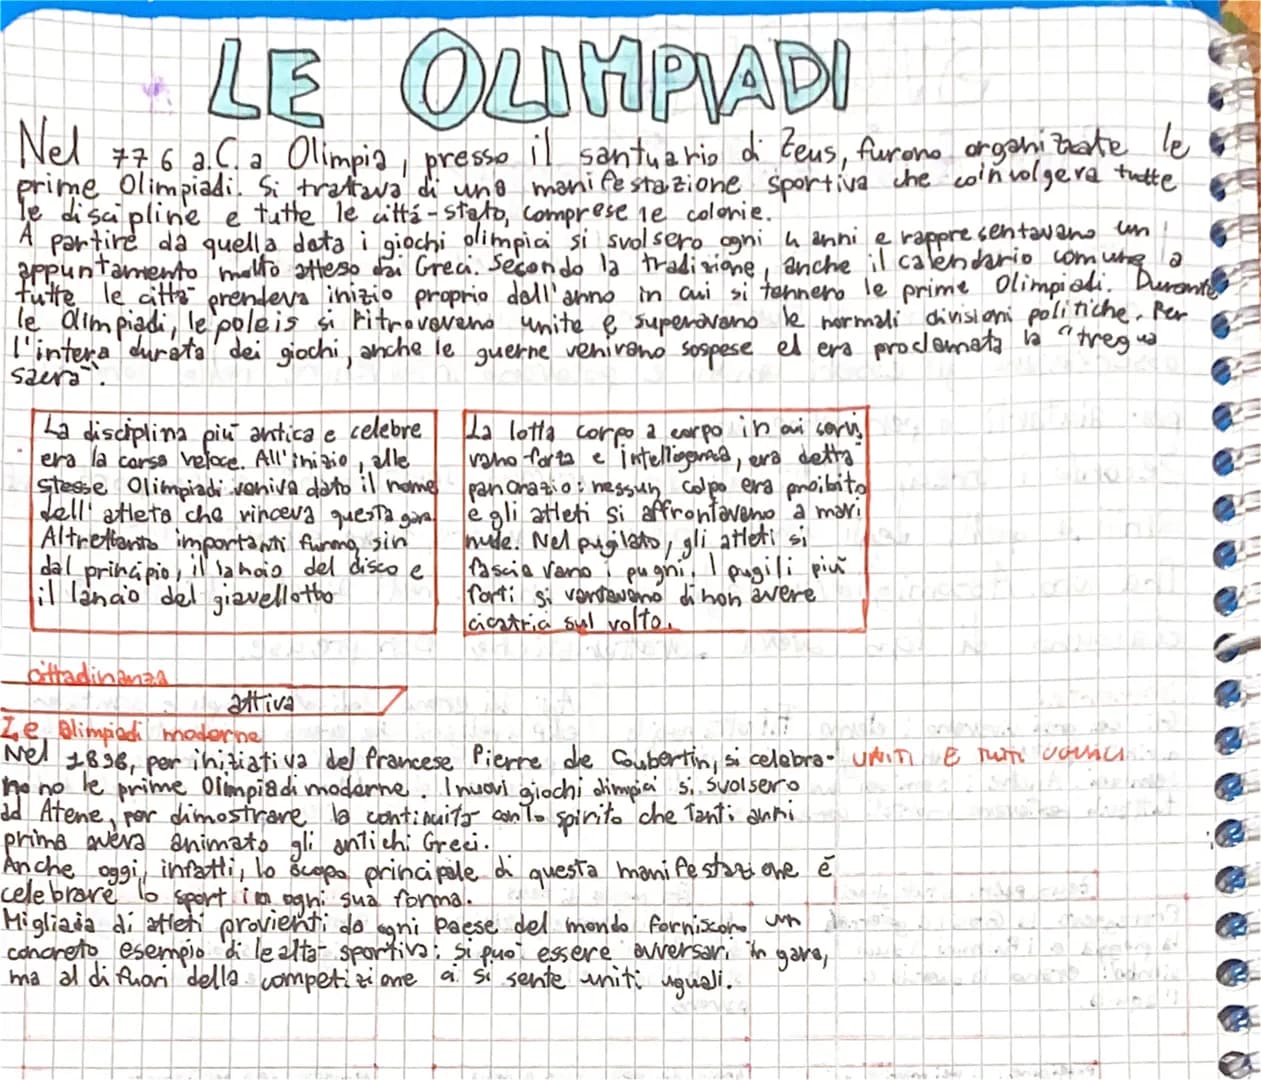 LE OLIMPIADI
Nel 776 a.C. a Olimpia, presso il santuario di Zeus, furono organizzate le
prime Olimpiadi. Si trattava di una manifestazione sportiva che coinvolgeva tutte
le discipline e tutte le città-stato, comprese le colonie.
A partire da quella data i giochi olimpici si svolsero ogni 4 anni e rappresentavano un
appuntamento molto atteso dai Greci. Secondo la tradizione, anche il calendario comune a
tutte le città prendeva inizio proprio dall'anno in cui si tennero le prime Olimpiadi. Durante
le Olimpiadi, le poleis si ritrovavano unite e superavano le normali divisioni politiche. Per
l'intera durata dei giochi, anche le guerre venivano sospese ed era proclamata la "tregua
sacra".
La disciplina più antica e celebre
era la corsa veloce. All'inizio, alle
stesse Olimpiadi veniva dato il nome
dell'atleta che vinceva questa gara.
Altrettanto importanti furono, sin
dal principio, il lancio del disco e
il lancio del giavellotto
La lotta corpo a corpo in cui servi
vano forza e intelligenza, era detta
pancrazio: nessun colpo era proibito
e gli atleti si affrontavano a mani
nude. Nel pugilato, gli atleti si
fasciavano i pugni. I pugili più
forti si vantavano di non avere
cicatrici sul volto.
cittadinanza
attiva
Le Olimpiadi moderne
Nel 1896, per iniziativa del francese Pierre de Coubertin, si celebra-
UNITI E TUTTI UGUALI
rono le prime Olimpiadi moderne. I nuovi giochi olimpici si svolsero
ad Atene, per dimostrare la continuità con lo spirito che tanti anni
prima aveva animato gli antichi Greci.
Anche oggi, infatti, lo scopo principale di questa manifestazione è
celebrare lo sport in ogni sua forma.
Migliaia di atleti provienti da ogni Paese del mondo forniscono un
concreto esempio di lealtà sportiva: si può essere avversari in gara,
ma al di fuori della competizione ci si sente uniti uguali.